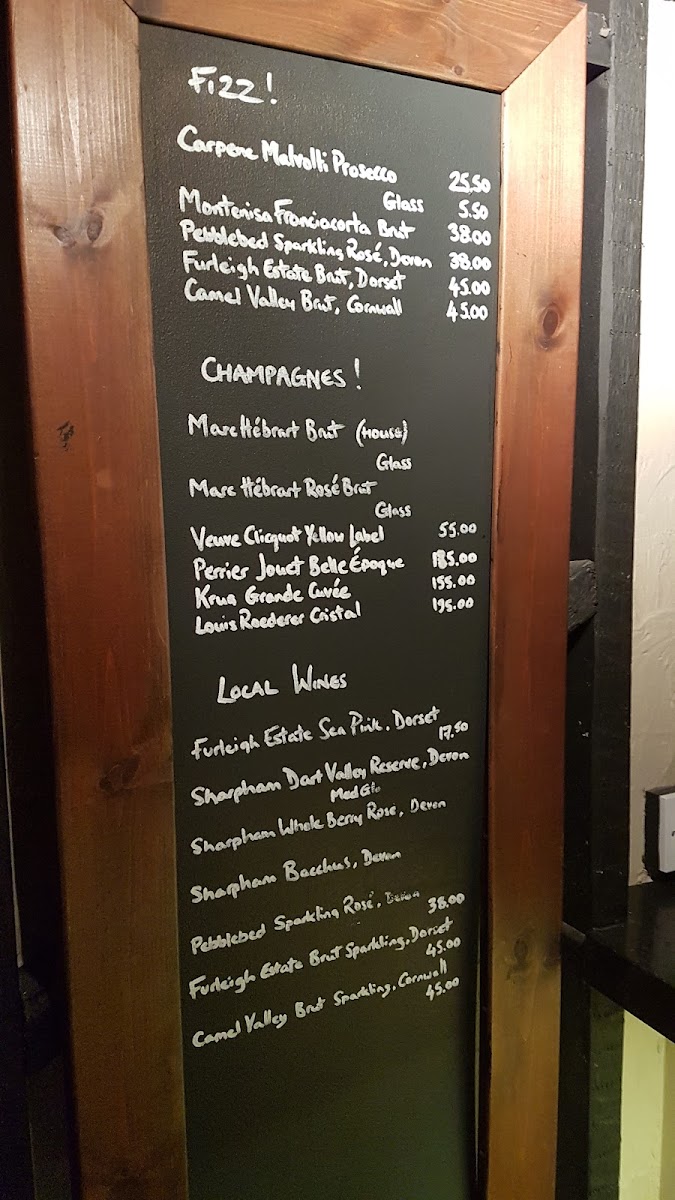 Fizz!
Carpene Malvolti Prosecco 25.50
Glass 5.50
Montenisa Franciacorta Brut 38.00
Pebblebed Sparkling Rosé, Devon 38.00
Furleigh Estate Brut, Dorset 45.00
Camel Valley Brut, Cornwall 45.00
CHAMPAGNES!
Marc Hébrart Brut (House)
Glass
Marc Hébrart Rosé Brut
Glass
Veuve Clicquot Yellow Label 55.00
Perrier Jouet Belle Époque 185.00
Krug Grande Cuvée 155.00
Louis Roederer Cristal 195.00
LOCAL WINES
Furleigh Estate Sea Pink, Dorset
17.50
Sharpham Dart Valley Reserve, Devon
Med Gls
Sharpham Whole Berry Rose, Devon
Sharpham Bacchus, Devon
Pebblebed Sparkling Rosé, Devon
38.00
Furleigh Estate Brut Sparkling, Dorset
45.00
Camel Valley Brut Sparkling, Cornwall
45.00